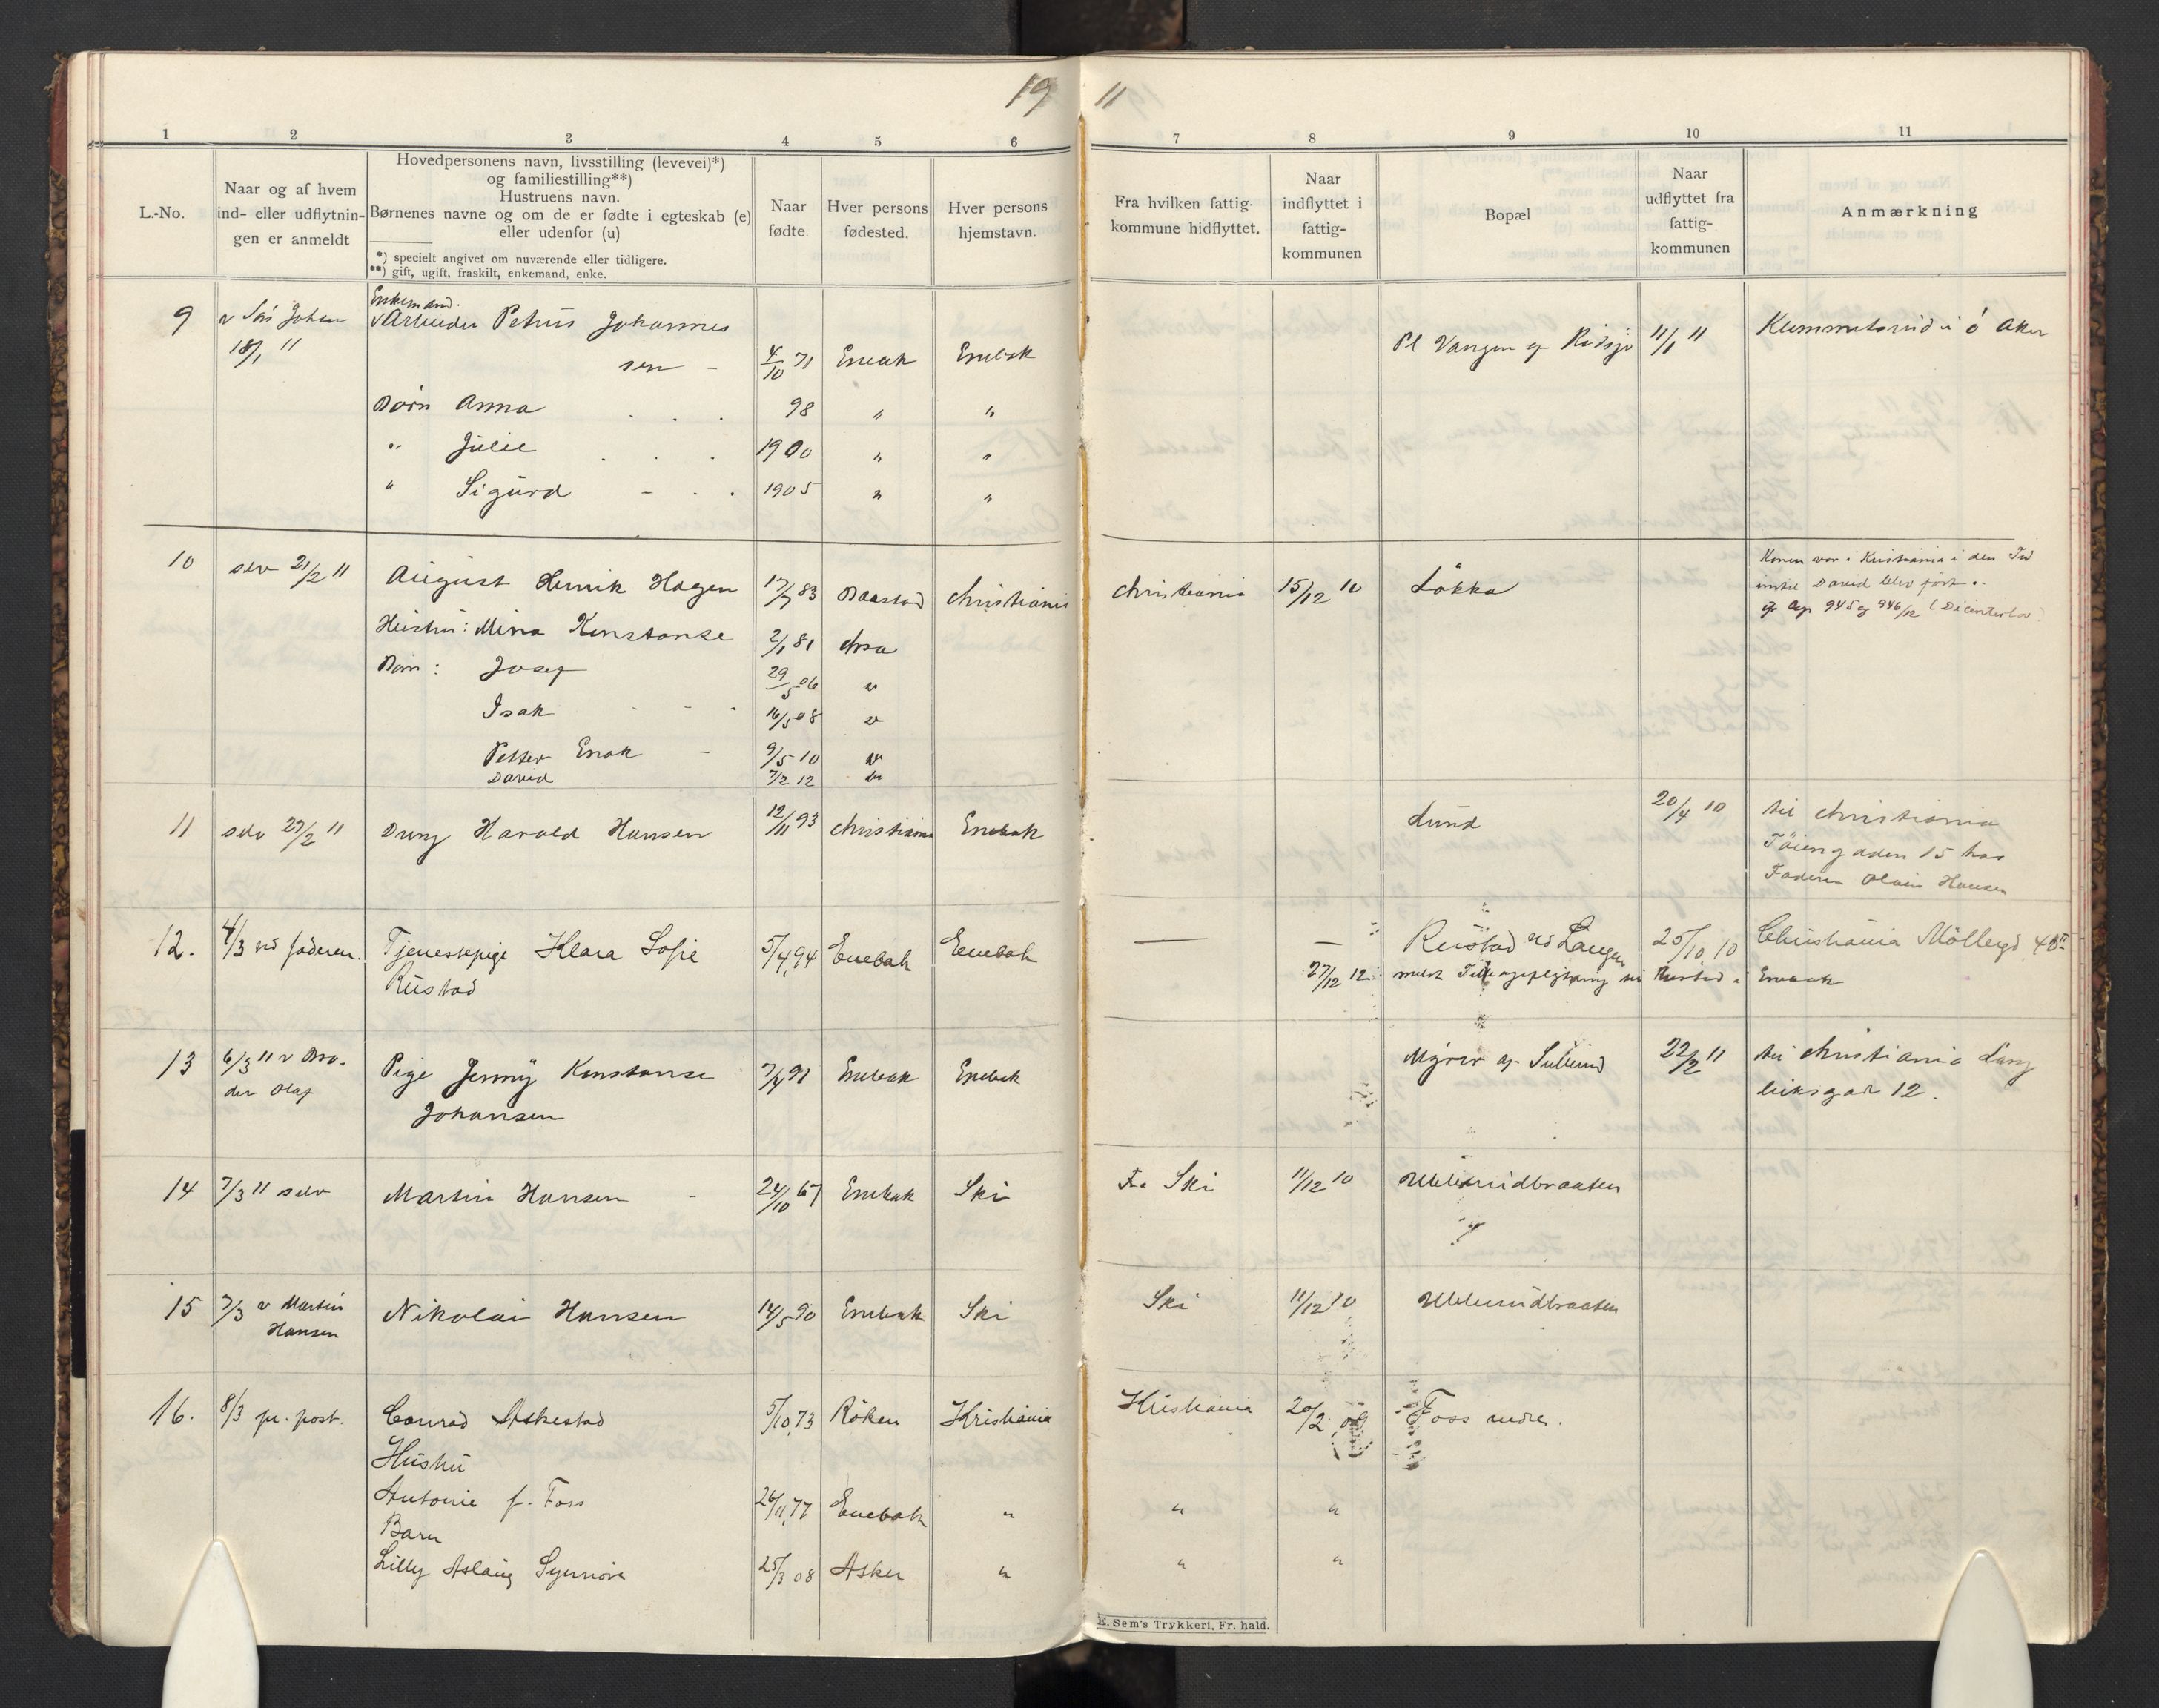 19 11
1 2 3 4 5 6 7 8 9 10 11
L.-No.
Naar og af hvem
ind- eller udflytnin-
gen er anmeldt
Hovedpersonens navn, livsstilling (levevei)*)
og familiestilling**)
Hustruens navn.
Børnenes navne og om de er fødte i egteskab (e)
eller udenfor (u)
*) specielt angivet om nuværende eller tidligere.
**) gift, ugift, fraskilt, enkemand, enke.
Naar
fødte.
Hver persons
fødested.
Hver persons
hjemstavn.
Fra hvilken fattig-
kommune hidflyttet.
Naar
indflyttet i
fattig-
kommunen
Bopæl
Naar
udflyttet fra
fattig-
kommunen
Anmærkning
Enkemand.
9 Arbeider Petrus Johannes
18/1 11 sen 4/10 71 Enebak Enebak Pl Vangen 11/1 11 Aker
Børn Anna 98 " "
" Julie 1900 " "
" Sigurd 1905 " "
Konen var i Kristiania i den Tid
10 selv 21/2 11 August Henrik Hagen 17/7 83 Baastad Christiania Christiania 15/12 10 Løkka indtil David blev født.
945 og 946/12
Hustru: Mina Konstanse 2/1 81
Børn: Josef 29/5 06 "
Isak 16/5 08 "
Petter Enok 9/5 10 "
David 7/2 12 "
11 selv 27/2 11 Dreng Harald Hansen 12/11 93 Christiania Enebak Lund 20/4 10 til Christiania
Tøiengaden 15 hos
Faderen Hansen
12. 4/3 ved faderen. Tjenestepige Klara Sofie 5/4 94 Enebak Enebak — — Rustad 25/10 10 Christiania
Rustad 27/12 12 Rustad i Enebak
13 6/3 11 v Bro- Pige Jenny Konstanse 7/4 91 Enebak Enebak 22/2 11 til Christiania Lang
der Olaf Johansen leiksgad 12.
14 7/3 11 selv Martin Hansen 24/10 67 Enebak Ski Fra Ski 11/12 10
15 7/3 v Martin Nikolai Hansen 14/5 90 Enebak Ski Ski 11/12 10
Hansen
16. 8/3 pr. post. Conrad Askestad 5/10 73 Röken Kristiania Kristiania 20/2 09 Foss nedre.
Hustru
Antonie f. Foss 26/11 77 Enebak " " "
Barn
Lilly Aslaug Synnöve 25/3 08 Asker " " "
E. Sem's Trykkeri, Fr.hald.